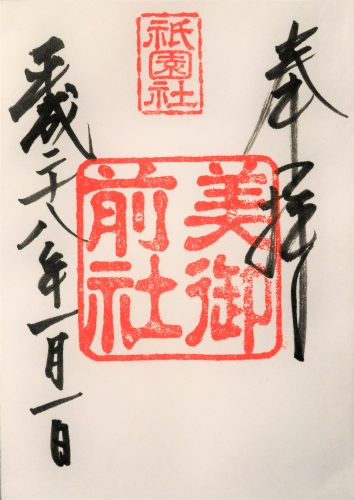 奉拝
祇園社
美御前社
平成二十八年一月一日